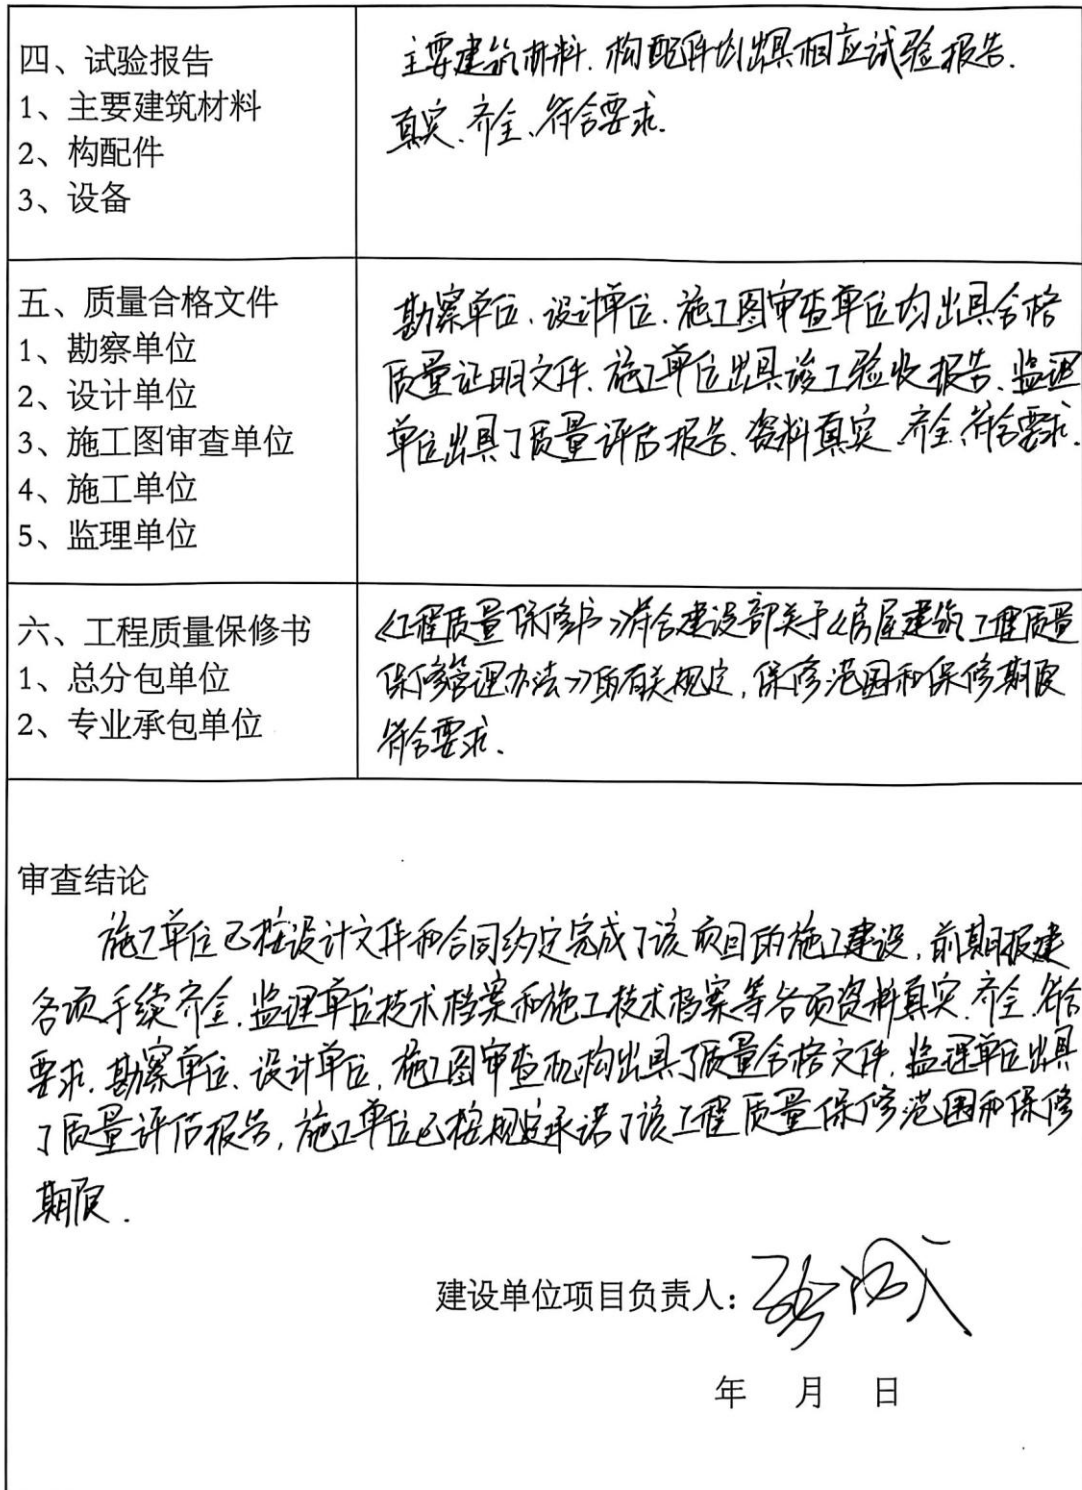 四、试验报告
1、主要建筑材料
2、构配件
3、设备
主要建筑材料、构配件均出具相应试验报告.
真实、齐全、符合要求.
五、质量合格文件
1、勘察单位
2、设计单位
3、施工图审查单位
4、施工单位
5、监理单位
勘察单位、设计单位、施工图审查单位均出具合格
质量证明文件、施工单位出具竣工验收报告、监理
单位出具了质量评估报告、资料真实、齐全、符合要求.
六、工程质量保修书
1、总分包单位
2、专业承包单位
《工程质量保修书》符合建设部关于《房屋建筑工程质量
保修管理办法》的有关规定,保修范围和保修期限
符合要求.
审查结论
施工单位已按设计文件和合同约定完成了该项目的施工建设,前期报建
各项手续齐全.监理单位技术档案和施工技术档案等各项资料真实、齐全、符合
要求.勘察单位、设计单位,施工图审查机构出具了质量合格文件,监理单位出具
了质量评估报告,施工单位已按规定承诺了该工程质量保修范围和保修
期限.
建设单位项目负责人:
年 月 日